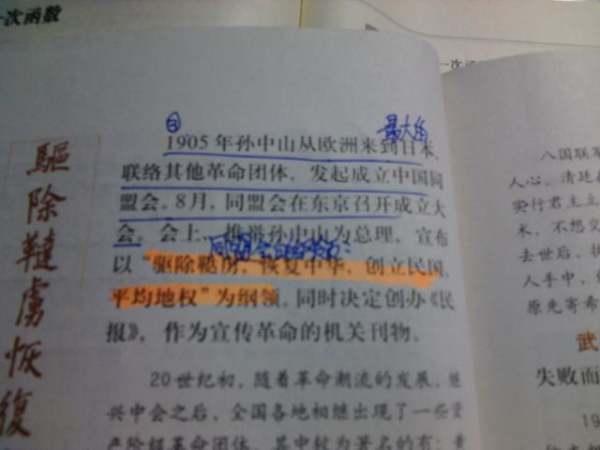 一次函数
一次
驅除韃虜恢復
②
最大
1905年孙中山从欧洲来到日本,
联络其他革命团体,发起成立中国同
盟会。8月,同盟会在东京召开成立大
会。会上,推举孙中山为总理,宣布
以“驱除鞑虏,恢复中华,创立民国,
平均地权”为纲领。同时决定创办《民
报》,作为宣传革命的机关刊物。
20世纪初,随着革命潮流的发展,继
兴中会之后,全国各地相继出现了一些资
产阶级革命团体。其中较为著名的有:
八国联军
人心,清廷
实行君主立
木,不想
去世后,
人手中,
原先寄希
武
失败而
19